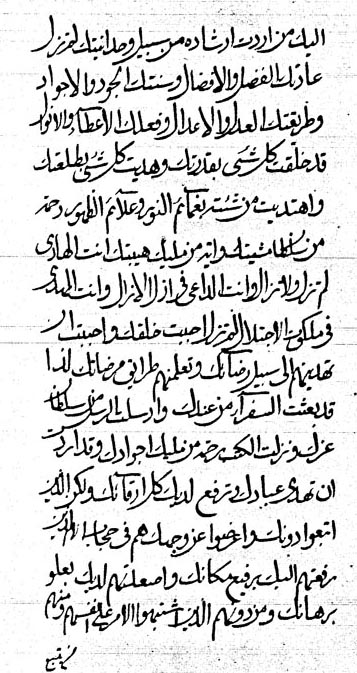 اليك من اردت ارشاده من سبيل وحدانيتك لم تزل
عادتك الفضل والافضال وسنتك الجود والاجواد
وطريقتك العدل والاعدال وفعلك الاعطاء والانوال
قد خلقت كل شئ بقدرتك وهديت كل شئ بطلعتك
واهتديت من شئت بغمائم النور وعلائم الظهور رحمة
من سلطان مشيتك وايد من مليك هيبتك انت الهادى
لم تزل ولا تزال وانت الداعى فى ازل الازال وانت المهدى
فى ملكوت الاجلال لم تزل احببت خلقك واحببت ان
تهديهم الى سبيل رضائك وتعلمهم طرائق مرضاتك لذا
قد بعثت السفراء من عندك وارسلت الرسل من سلطان
عزك ونزلت الكتب رحمة من مليك اجوادك وقد اردت
ان تهدى عبادك وترفع لديك كل ارقائك ولكن الذين
اتبعوا دونك واعرضوا عن وجهك هم فى حجاب الذين
رفعتهم اليك برفيع مكانك واصعدتهم لديك بعلو
برهانك ومن دونهم الذين اشتبهوا الامر على انفسهم ومنهم